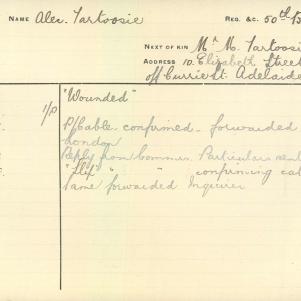 NAME Alec. Tartoosie
REG. &C. 50th B
NEXT OF KIN Mr M. Tartoosi
ADDRESS 10. Elizabeth Street
off Currie St. Adelaide
1/P "Wounded"
P/Cable confirmed - forwarded
London
Reply from Commrs. Particulars sent
"Slip" " " confirming cab
same forwarded Inquirer